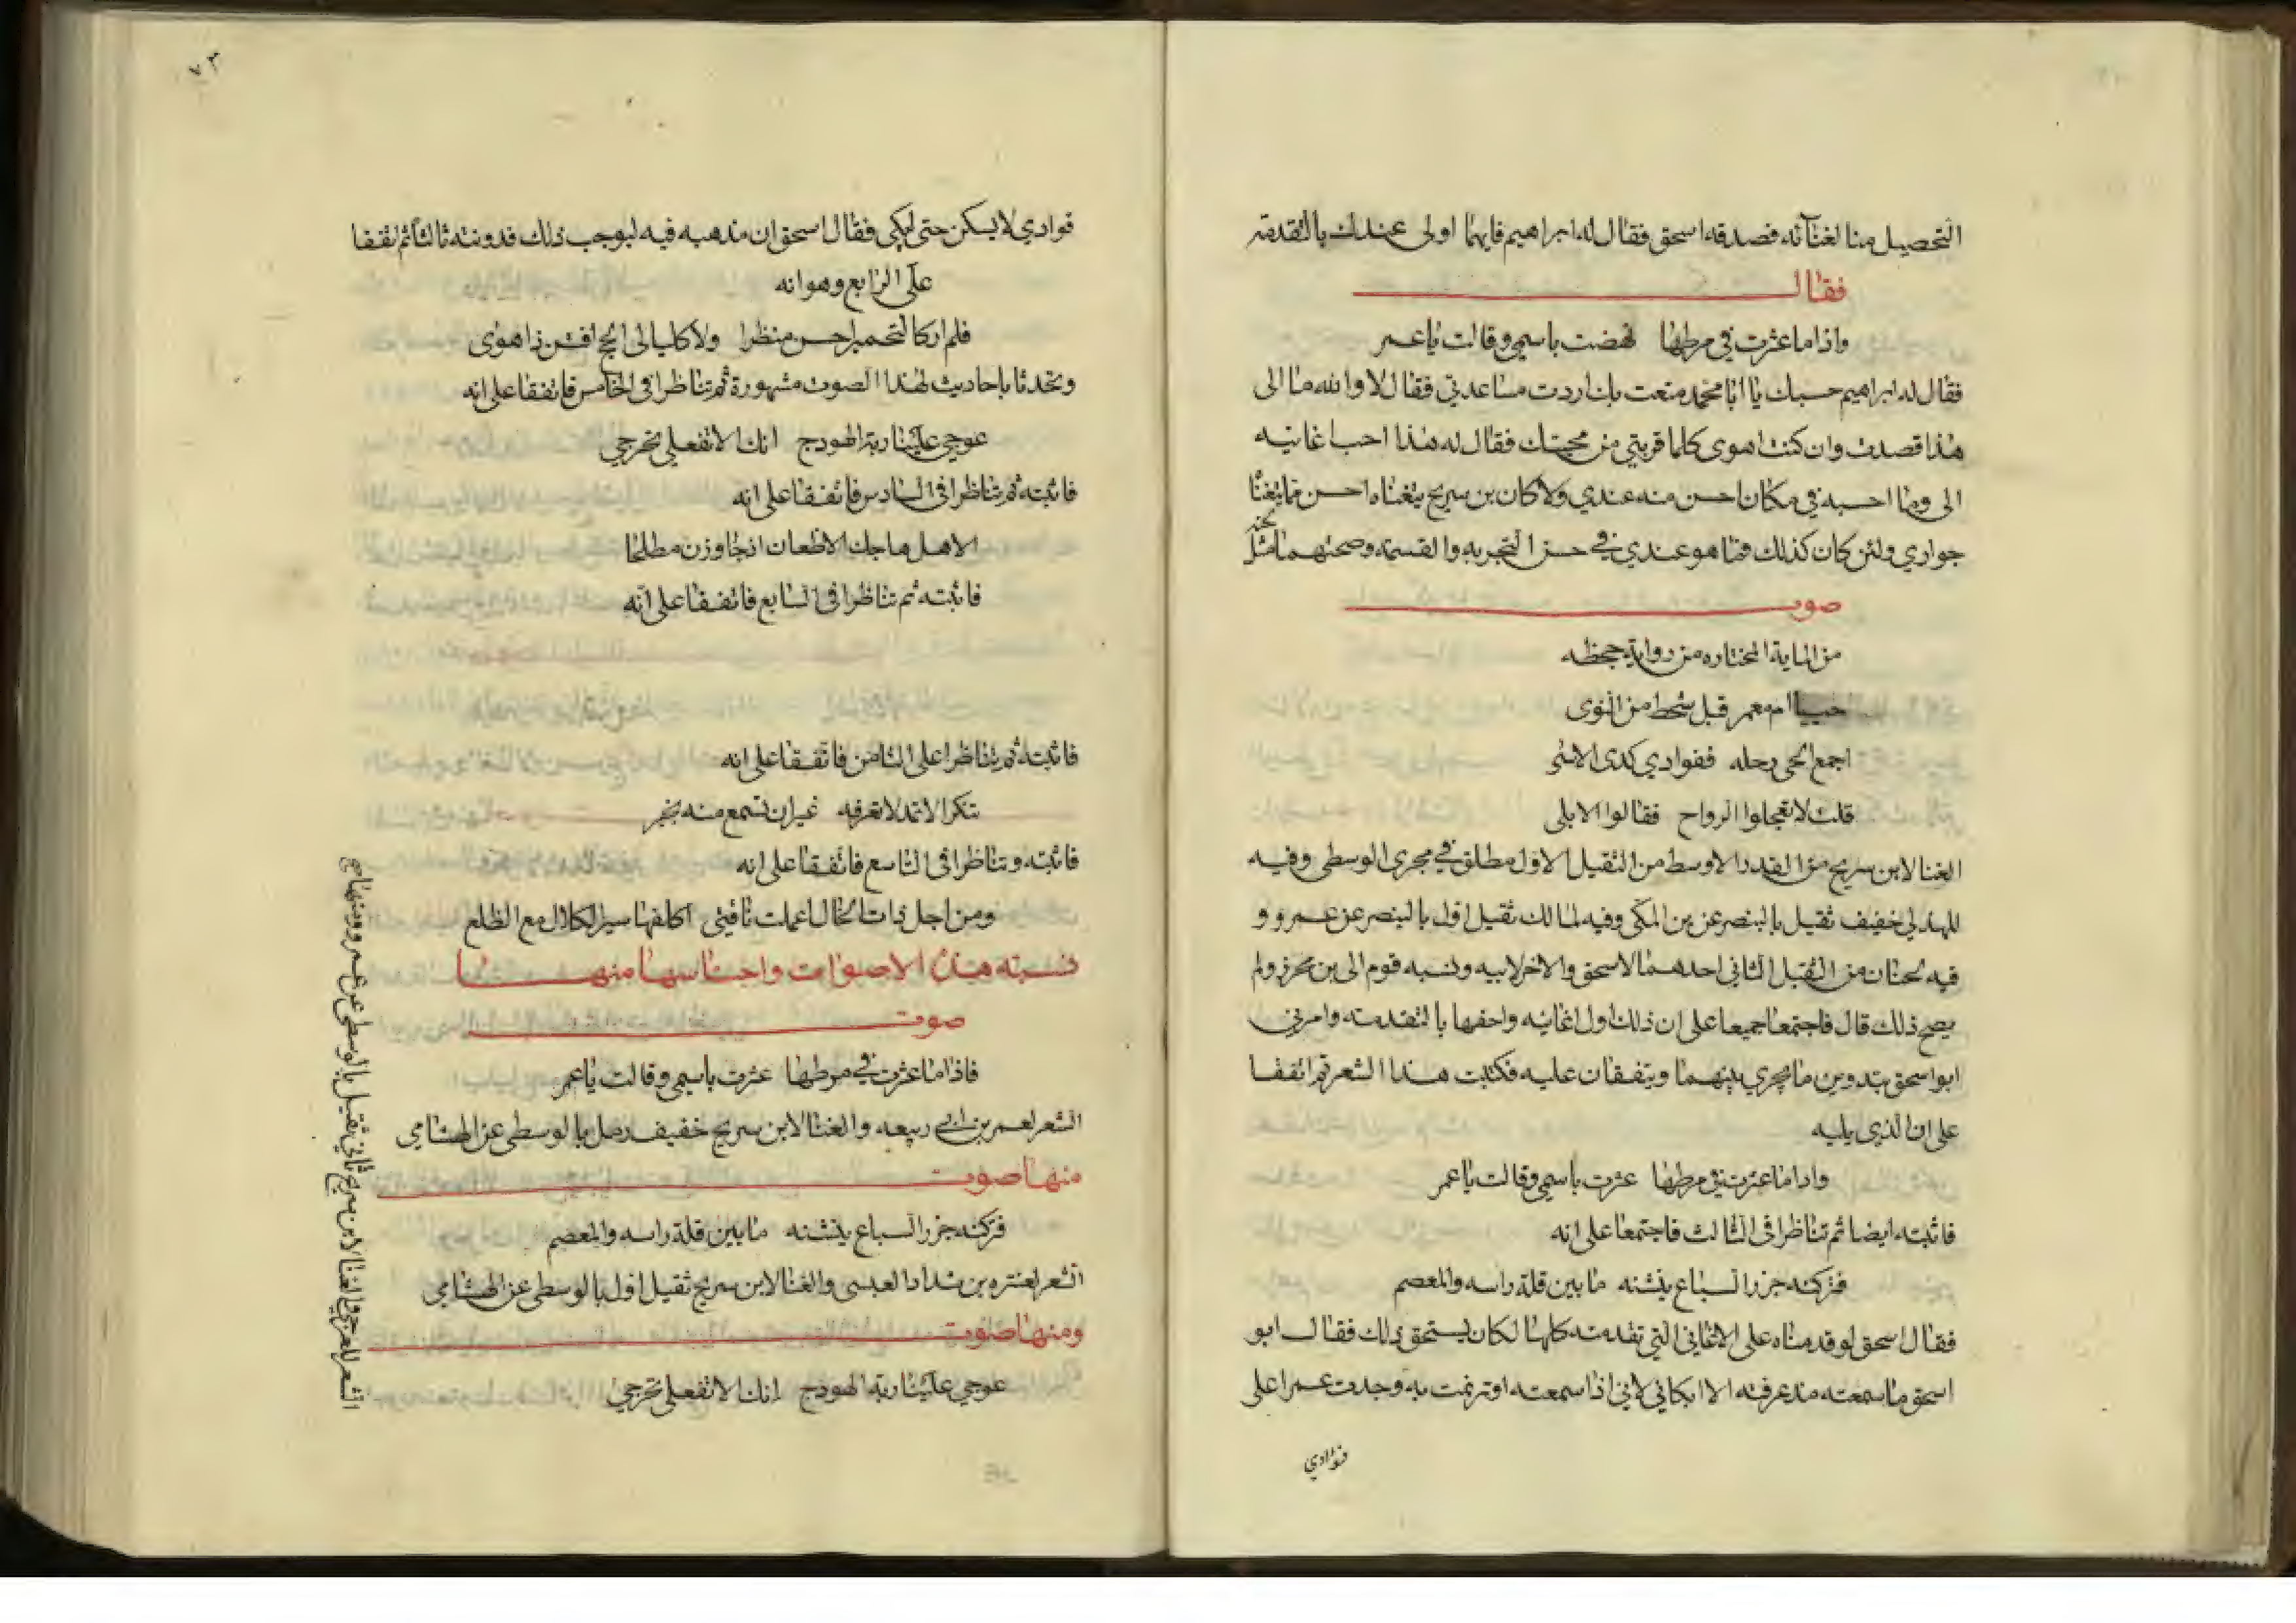 التحصيل منا لغنآئه فصدقه اسحق فقال له ابراهيم فايهما اولى عندك بالتقدمة
فقال
واذا ما عثرت في مرطها نهضت باسمي وقالت يا عمر
فقال له ابراهيم حسبك يا ابا محمد متعت بك اردت مساعدتي فقال لا والله ما الى
هذا قصدت وان كنت اهوى كلما قربتي من محبتك فقال له هذا احب اغانيه
الى وما احسبه في مكان احسن منه عندي ولا كان بن سريج يتغناه احسن مما يتغنا
جواري ولئن كان كذلك فما هو عندي في حسن التجزيه والقسمة وصحتهما مثل
لحنه
صوت
من الماية المختاره من رواية جحظه
حييا ام معمر قبل شحط من النوى
اجمع الحي رحله ففوادي كذى الاسى
قلت لا تعجلوا الرواح فقالوا الا بلى
الغنا لابن سريج من القدر الاوسط من الثقيل الاول مطلق في مجرى الوسطى وفيه
للهذلي خفيف ثقيل بالبنصر عن بن المكي وفيه لمالك ثقيل اول بالبنصر عن عمرو و
فيه لحنان من الثقيل الثاني احدهما لاسحق والاخر لابيه ونسبه قوم الى بن محرز ولم
يصح ذلك قال فاجتمعا جميعا على ان ذلك اول اغانيه واحقها بالتقدمة وامرني
ابو اسحق بتدوين ما يجري بينهما ويتفقان عليه فكتبت هذا الشعر ثم اتفقا
على ان الذي يليه
واذا ما عثرت في مرطها عثرت باسمي وقالت يا عمر
فاثبته ايضا ثم تناظرا في الثالث فاجتمعا على انه
فتركنه جزر السباع ينشنه ما بين قلة راسه والمعصم
فقال اسحق لو قدمناه على الاغاني التي تقدمته كلها لكان يستحق ذلك فقال ابو
اسحق ما سمعته منذ عرفته الا ابكاني لاني اذا سمعته او ترنمت به وجدت غمرا على
فوادي
٧٣
فوادي لا يسكن حتى ابكي فقال اسحق ان مذهبه فيه ليوجب ذلك فدونته ثالثا ثم اتفقا
على الرابع وهو انه
فلم ار كالتجمير احسن منظرا ولا كليالى الحج افتن ذا هوى
وتحدثا باحاديث لهذا الصوت مشهورة ثم تناظرا في الخامس فاتفقا على انه
عوجي علينا ربة الهودج انك الا تفعلي تحرجي
فاثبته ثم تناظرا في السادس فاتفقا على انه
الا هل هاجك الاظعان اذ جاوزن مطلحا
فاثبته ثم تناظرا في السابع فاتفقا على انه
فاثبته ثم تناظرا على الثامن فاتفقا على انه
تنكر الاثمد لا تعرفه غير ان تسمع منه بخبر
فاثبته وتناظرا في التاسع فاتفقا على انه
ومن اجل ذات الخال اعملت ناقتي اكلفها سير الكلال مع الظلع
نسبة هذه الاصوات واجناسها منها
صوت
فاذا ما عثرت في مرطها عثرت باسمي وقالت يا عمر
الشعر لعمر بن ابي ربيعه والغنا لابن سريج خفيف رمل بالوسطى عن الهشامي
منها صوت
فتركنه جزر السباع ينشنه ما بين قلة راسه والمعصم
الشعر لعنتره بن شداد العبسى والغنا لابن سريج ثقيل اول بالوسطى عن الهشامي
ومنها صوت
عوجي علينا ربة الهودج انك الا تفعلي تحرجي
الشعر للعرجي والغنا لابن سريج ثاني ثقيل بالوسطى عن عمرو ومنها